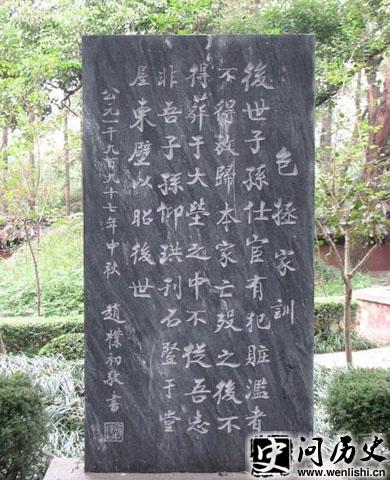 包拯家訓
後世子孫仕宦有犯賍濫者
不得放歸本家亡歿之後不
得葬于大塋之中不從吾志
非吾子孫仰珙刊石豎于堂
屋東壁以昭後世
公元一千九百九十七年中秋 趙樸初敬書
史 问历史
www.wenlishi.cn